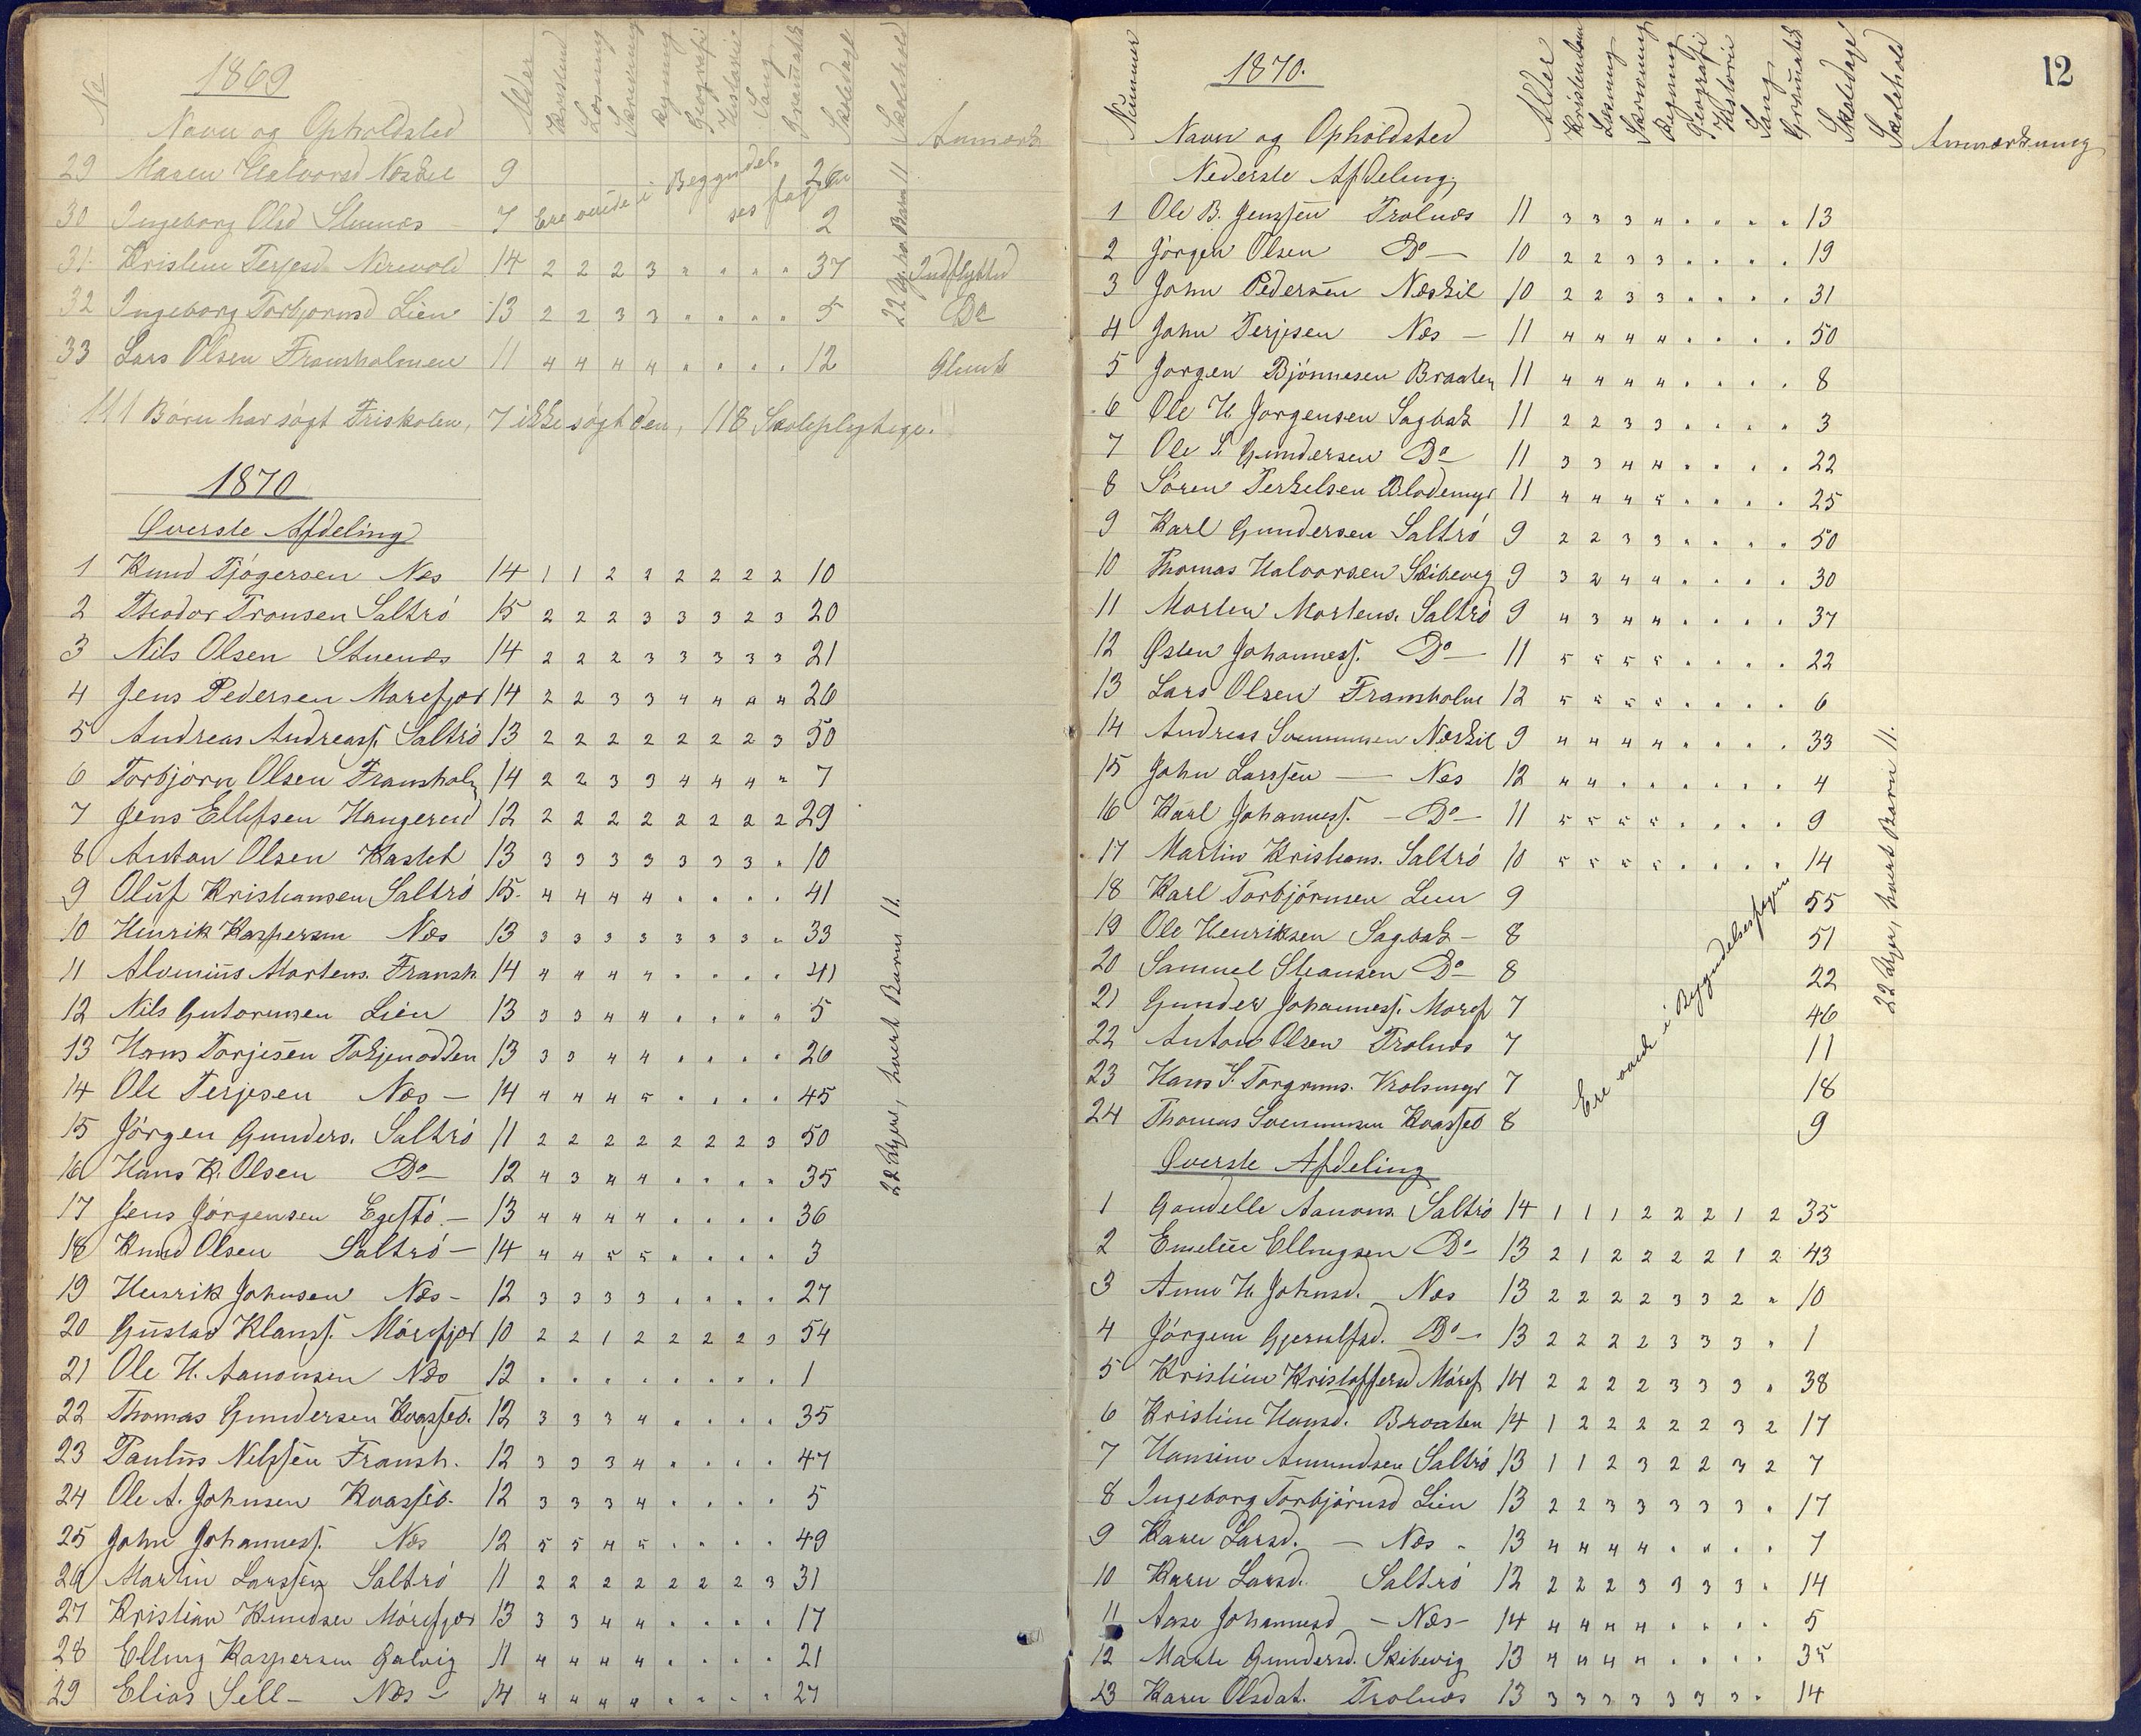 1869
No
Navn og Opholdsted
Alder
Kristend
Læsning
Skrivning
Regning
Geografi
Historie
Sang
Gramatik
Skoledage
Skolehold
Anmærk
29 Maren Halvorsd Neskil 9 26
30 Ingeborg Olsd Stuenæs 7 2
Ere øvede i Beggyndel-
ses fagene
31 Kristine Terjesd. 14 2 2 2 3 " " " " 37 Indflyttet
32 Ingeborg Torbjørnsd Lien 13 2 2 3 3 " " " " 5 Do
33 Lars Olsen Framsholmen 11 4 4 4 4 " " " " 12 Glemt
111 Börn har sögt Friskolen, 7 ikke sögt den, 118 Skoleplegtige.
1870
Øverste Afdeling
1 Knud Tjögersen Nes 14 1 1 2 2 2 2 2 2 10
2 Theodor Tronsen Saltrö 15 2 2 2 3 3 3 2 3 20
3 Nils Olsen Stuenæs 14 2 2 2 3 3 3 3 3 21
4 Jens Pedersen Morefjør 14 2 2 3 3 4 4 4 4 26
5 Andreas Andreass. Saltrö 13 2 2 2 2 2 2 2 3 50
6 Torbjörn Olsen Framsholm 14 2 2 3 3 4 4 4 " 7
7 Jens Ellefsen Haugerud 12 2 2 2 2 2 2 2 2 29
8 Anton Olsen Kastet 13 3 3 3 3 3 3 3 " 10
9 Oluf Kristiansen Saltrö 15 4 4 4 4 " " " " 41
10 Henrik Kaspersen Næs 13 3 3 3 3 3 3 3 " 33
11 Mortens. Fransh. 14 4 4 4 4 " " " " 41
12 Nils Gutormsen Lien 13 3 3 4 4 " " " " 5
13 Hans Torjesen Tokjenodden 13 3 3 4 4 " " " " 26
14 Ole Terjesen Næs 14 4 4 4 5 " " " " 45
15 Jörgen Gunders. Saltrö 11 2 2 2 2 2 2 2 3 50
16 Hans K. Olsen Do 12 4 3 4 4 " " " " 35
17 Jens Jörgensen 13 4 4 4 4 " " " " 36
18 Knud Olsen Saltrö 14 4 4 5 5 " " " " 3
19 Henrik Johnsen Næs 12 3 3 3 3 " " " " 27
20 Gustav Klauss. Mörefjør 10 2 2 1 2 2 2 2 3 54
21 Ole H. Aanonsen Næs 12 " " " " " " " " 1
22 Thomas Gundersen Kvasseb. 12 3 3 3 4 " " " " 35
23 Paulus Nilssen Fransh. 12 3 3 3 4 " " " " 47
24 Ole A. Johnsen Kvasseb. 12 3 3 3 4 " " " " 5
25 John Johanness. Nes 12 5 5 4 5 " " " " 49
26 Martin Larssen Saltrö 11 2 2 2 2 2 2 2 3 31
27 Kristian Knudsen Mörefjær 13 3 3 4 4 " " " " 17
28 Elling Kaspersen Galvig 11 4 4 4 4 " " " " 21
29 Elias Sell Næs 14 4 4 4 4 " " " " 27
22 Uger, hvert Barn 11.
12
1870.
Nummer
Navn og Opholdsted
Alder
Kristendom
Læsning
Skrivning
Regning
Geografi
Historie
Sang
Gramatik
Skoledage
Skolehold
Anmærkning
Nederste Afdeling
1 Ole B. Jenssen Trolnæs 11 3 3 3 4 " " " " 13
2 Jörgen Olsen Do 10 2 2 3 3 " " " " 19
3 John Pedersen Næskil 10 2 2 3 3 " " " " 31
4 John Terjesen Næs 11 4 4 4 4 " " " " 50
5 Jorgen Bjönnesen Braaten 11 4 4 4 4 " " " " 8
6 Ole H. Jorgensen Sagbak 11 2 2 3 3 " " " " 3
7 Ole S. Gundersen Do 11 3 3 4 4 " " " " 22
8 Sören Terkelsen Blodemyr 11 4 4 4 5 " " " " 25
9 Karl Gundersen Saltrö 9 2 2 3 3 " " " " 50
10 Thomas Halvorsen Skibevig 9 3 2 4 4 " " " " 30
11 Morten Mortens. Saltrö 9 4 3 4 4 " " " " 37
12 Østen Johanness. Do 11 5 5 5 5 " " " " 22
13 Lars Olsen Framsholm 12 5 5 5 5 " " " " 6
14 Andreas Svennumsen Næskil 9 4 4 4 4 " " " " 33
15 John Larssen Nes 12 4 4 " " " " " " 4
16 Karl Johanness. Do 11 5 5 5 5 " " " " 9
17 Martin Kristians. Saltrö 10 5 5 5 5 " " " " 14
18 Karl Torbjörnsen Lien 9 55
19 Ole Henriksen Sagbak 8 51
20 Samuel Do 8 22
21 Gunder Johanness. Moref 7 46
22 Anton Olsen Trolnæs 7 11
23 Hans S. Torgrims. 7 18
24 Thomas Svennumsen Kvasseb 8 9
Ere øvede i Begyndelsesfagene
Øverste Afdeling
1 Gondelle Aanons. Saltrö 14 1 1 1 2 2 2 1 2 35
2 Emelie Ellingsen Do 13 2 1 2 2 2 2 1 2 43
3 Anne H. Johnsd. Næs 13 2 2 2 2 3 3 2 " 10
4 Jörgine Gjerulfsd. Do 13 2 2 2 2 3 3 3 " 1
5 Kristine Kristoffersd Móref 14 2 2 2 2 3 3 3 " 38
6 Kristine Hansd. Broaten 14 1 2 2 2 2 2 3 2 17
7 Hansine Amundsen Saltrö 13 1 1 2 3 2 2 3 2 7
8 Ingeborg Torbjörnsd Lien 13 2 2 3 3 3 3 3 " 17
9 Karen Larsd. Næs 13 4 4 4 4 " " " " 7
10 Karen Larsd. Saltrö 12 2 2 2 3 3 3 3 " 14
11 Aase Johannesd Næs 14 4 4 4 4 " " " " 5
12 Marte Gundersd. Skibevig 13 4 4 4 4 " " " " 35
13 Karen Olsdat. Trolnæs 13 3 3 3 3 3 3 3 " 14
22 Uger, hvert Barn 11.